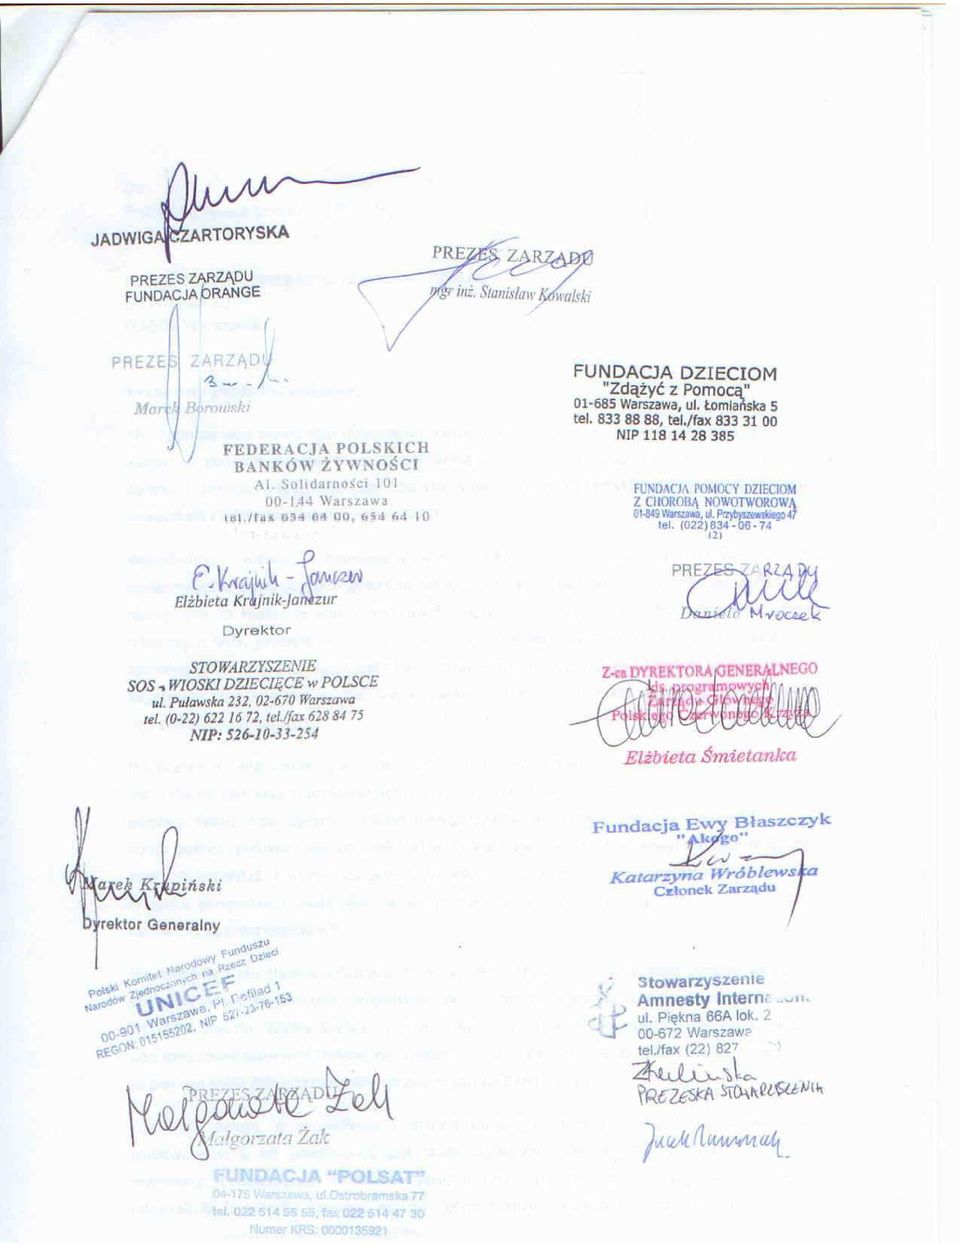 JADWIGA CZARTORYSKA
PREZES ZARZĄDU
FUNDACJA ORANGE
PREZES ZARZĄDU
mgr inż. Stanisław Kowalski
PREZES ZARZĄDU
Marek Borowski
FEDERACJA POLSKICH
BANKÓW ŻYWNOŚCI
Al. Solidarności 101
00-144 Warszawa
tel./fax 654 64 00, 654 64 10
FUNDACJA DZIECIOM
"Zdążyć z Pomocą"
01-685 Warszawa, ul. Łomiańska 5
tel. 833 88 88, tel./fax 833 31 00
NIP 118 14 28 385
FUNDACJA POMOCY DZIECIOM
Z CHOROBĄ NOWOTWOROWĄ
01-849 Warszawa, ul. Przybyszewskiego 47
tel. (022) 834-06-74
(2)
E. Krajnik - Janczur
Elżbieta Krajnik-Janczur
Dyrektor
STOWARZYSZENIE
SOS - WIOSKI DZIECIĘCE w POLSCE
ul. Puławska 232, 02-670 Warszawa
tel. (0-22) 622 16 72, tel./fax 628 84 75
NIP: 526-10-33-254
PREZES ZARZĄDU
Mroczek
Z-ca DYREKTORA GENERALNEGO
ds. programowych
Zarządu Głównego
Polskiego Czerwonego Krzyża
Elżbieta Śmietanka
Marek Krupiński
Dyrektor Generalny
Polski Komitet Narodowy Funduszu
Narodów Zjednoczonych na Rzecz Dzieci
UNICEF
00-901 Warszawa, Pl. Defilad 1
REGON: 015155202, NIP 527-23-76-153
Fundacja Ewy Błaszczyk
"Akogo"
Katarzyna Wróblewska
Członek Zarządu
Stowarzyszenie
Amnesty
ul. Piękna 66A lok. 2
00-672 Warszawa
tel./fax (22) 827
PREZESKA STOWARZYSZENIA
PREZES ZARZĄDU
Małgorzata Żak
Małgorzata Żak
FUNDACJA "POLSAT"
04-175 Warszawa, ul.Ostrobramska 77
tel. 022 514 55 55, fax 022 514 47 30
Numer KRS: 0000135921